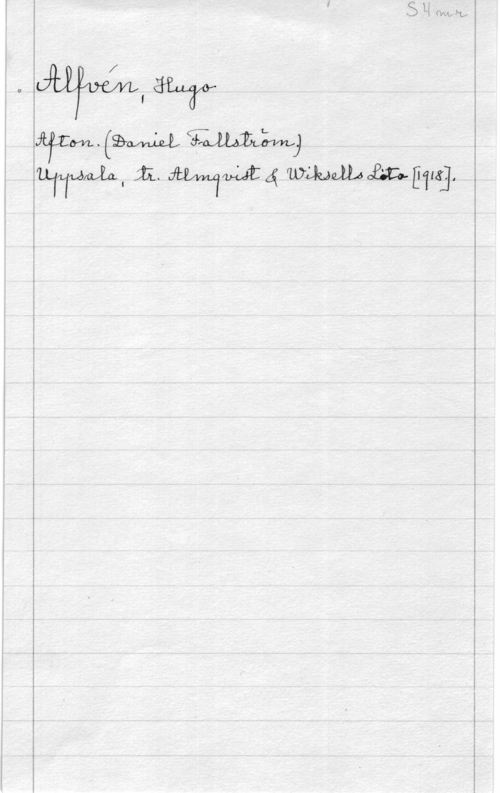 S4mr
Alfvén, Hugo
Afton. (Daniel Fallström)
Uppsala, tr. Almqvist & Wiksells Lito [1918].